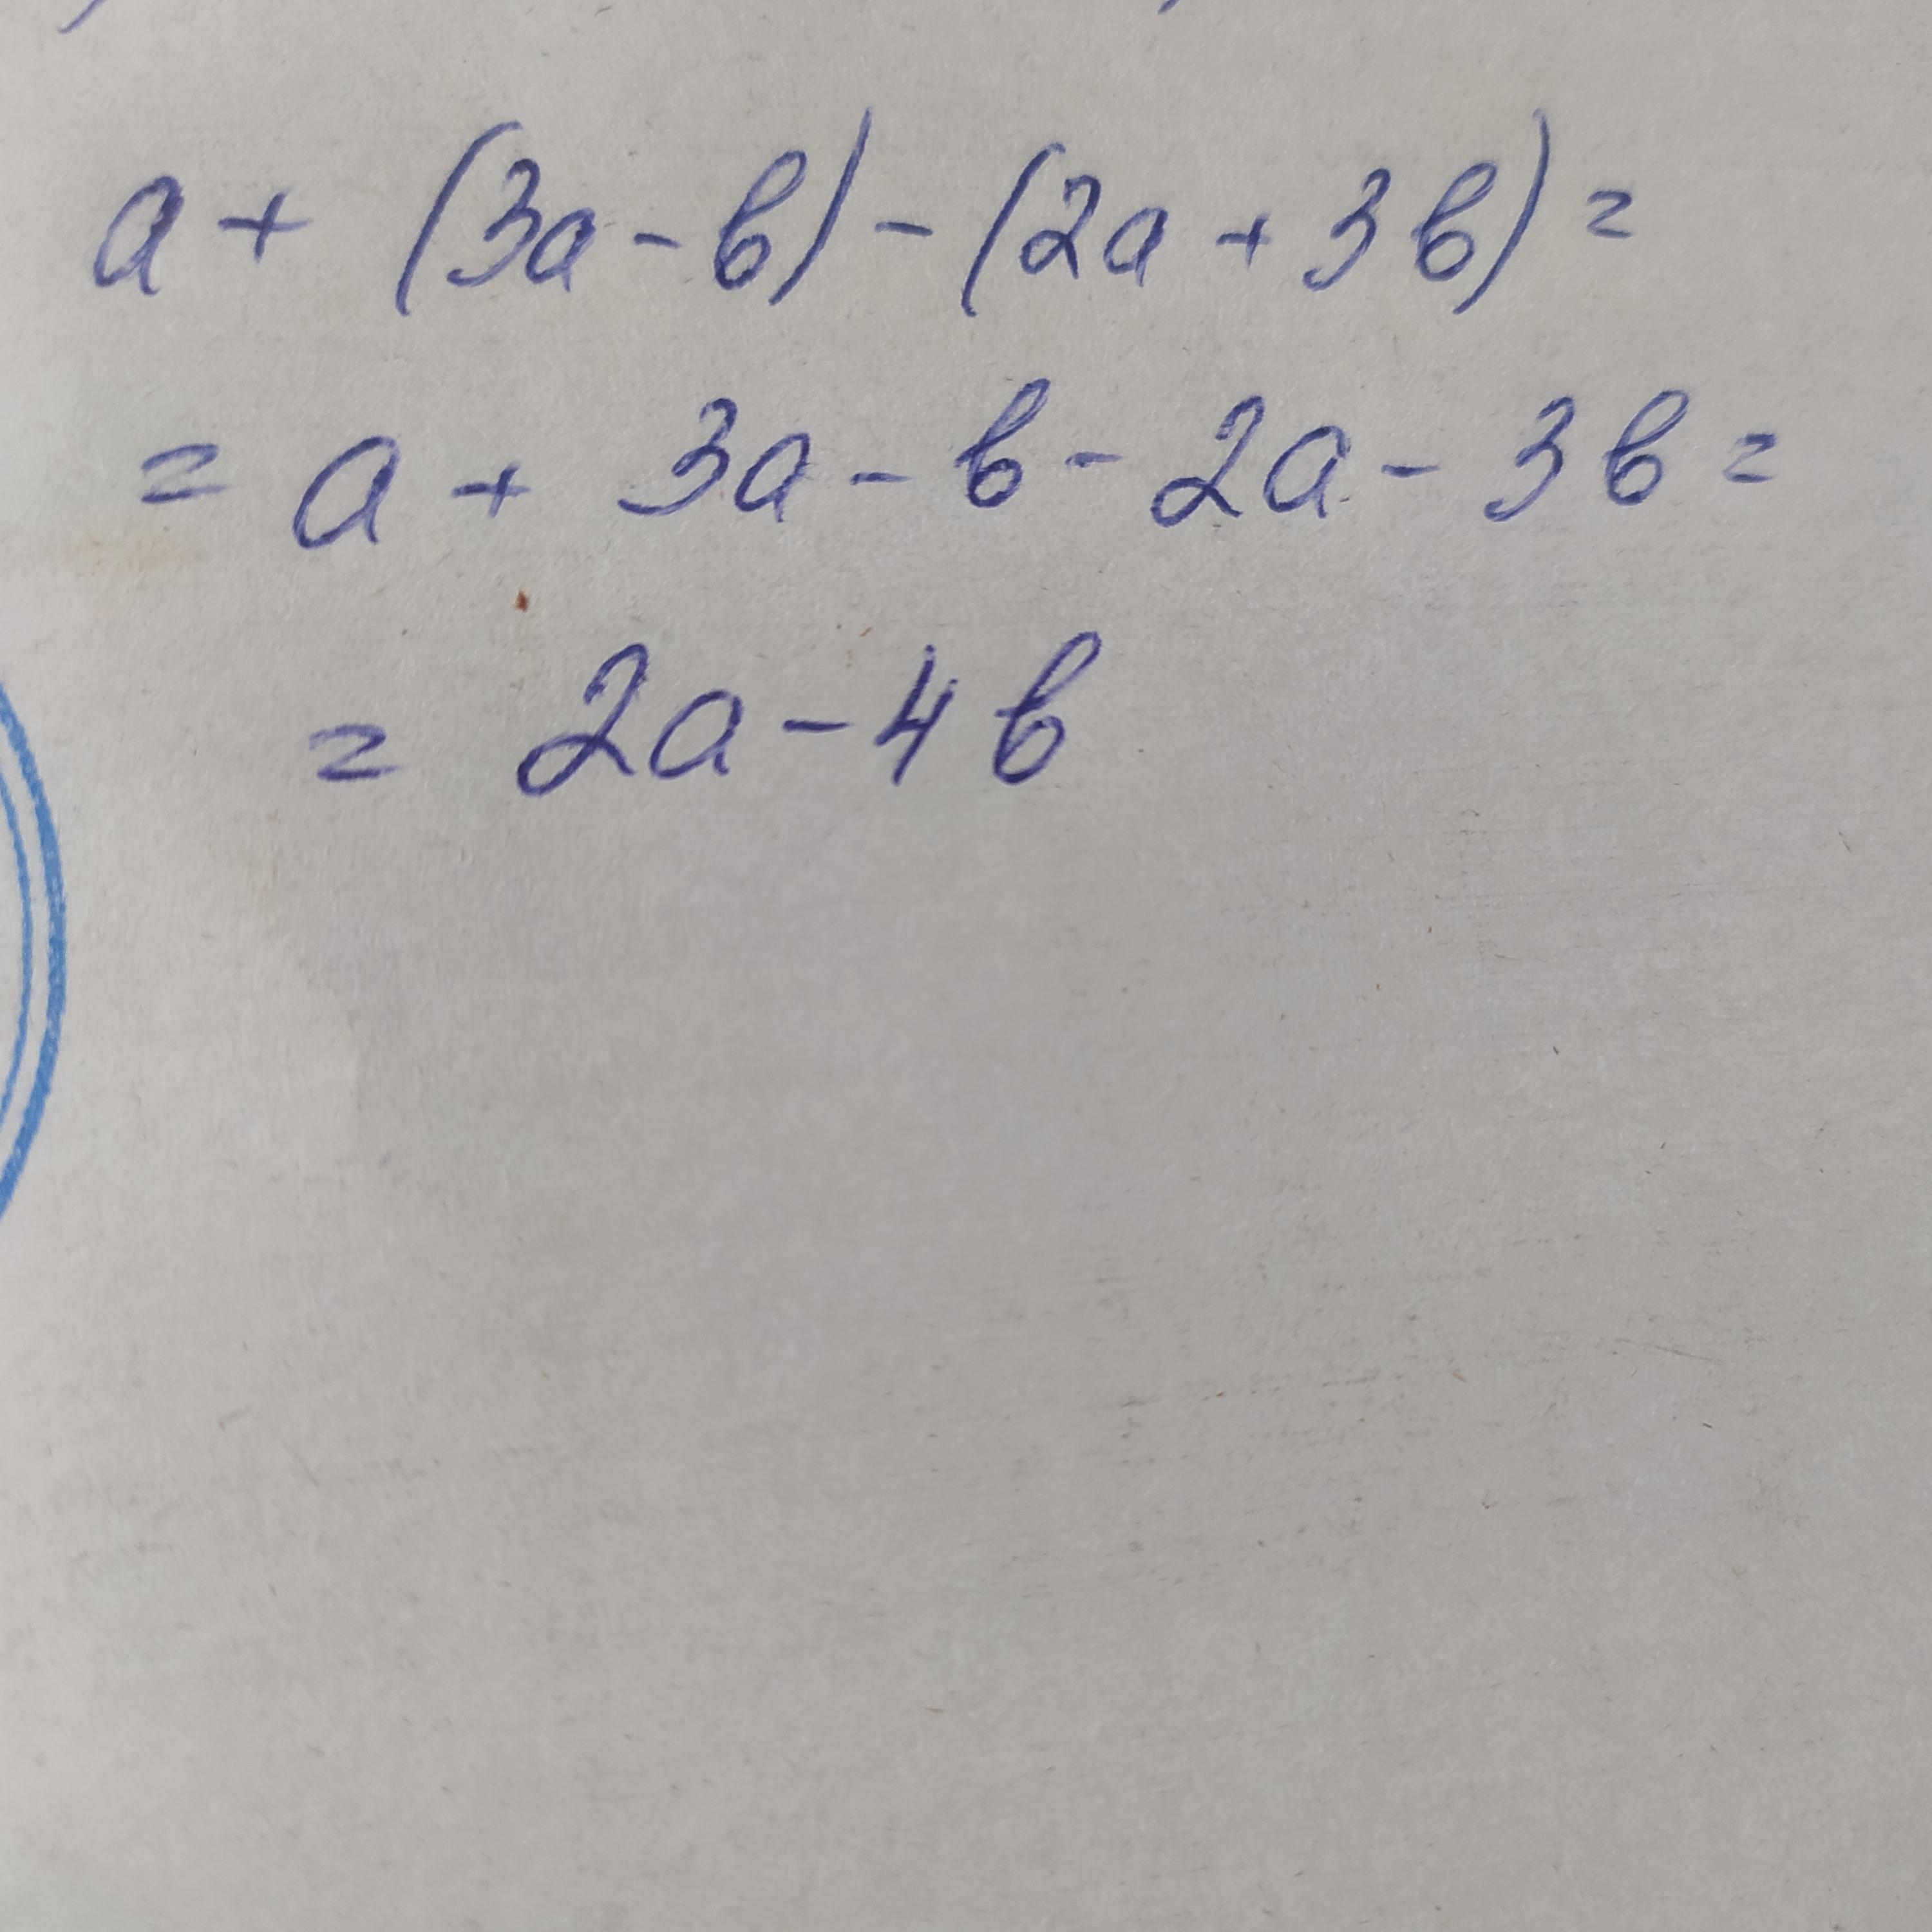 a + (3a - b) - (2a + 3b) =
= a + 3a - b - 2a - 3b =
= 2a - 4b